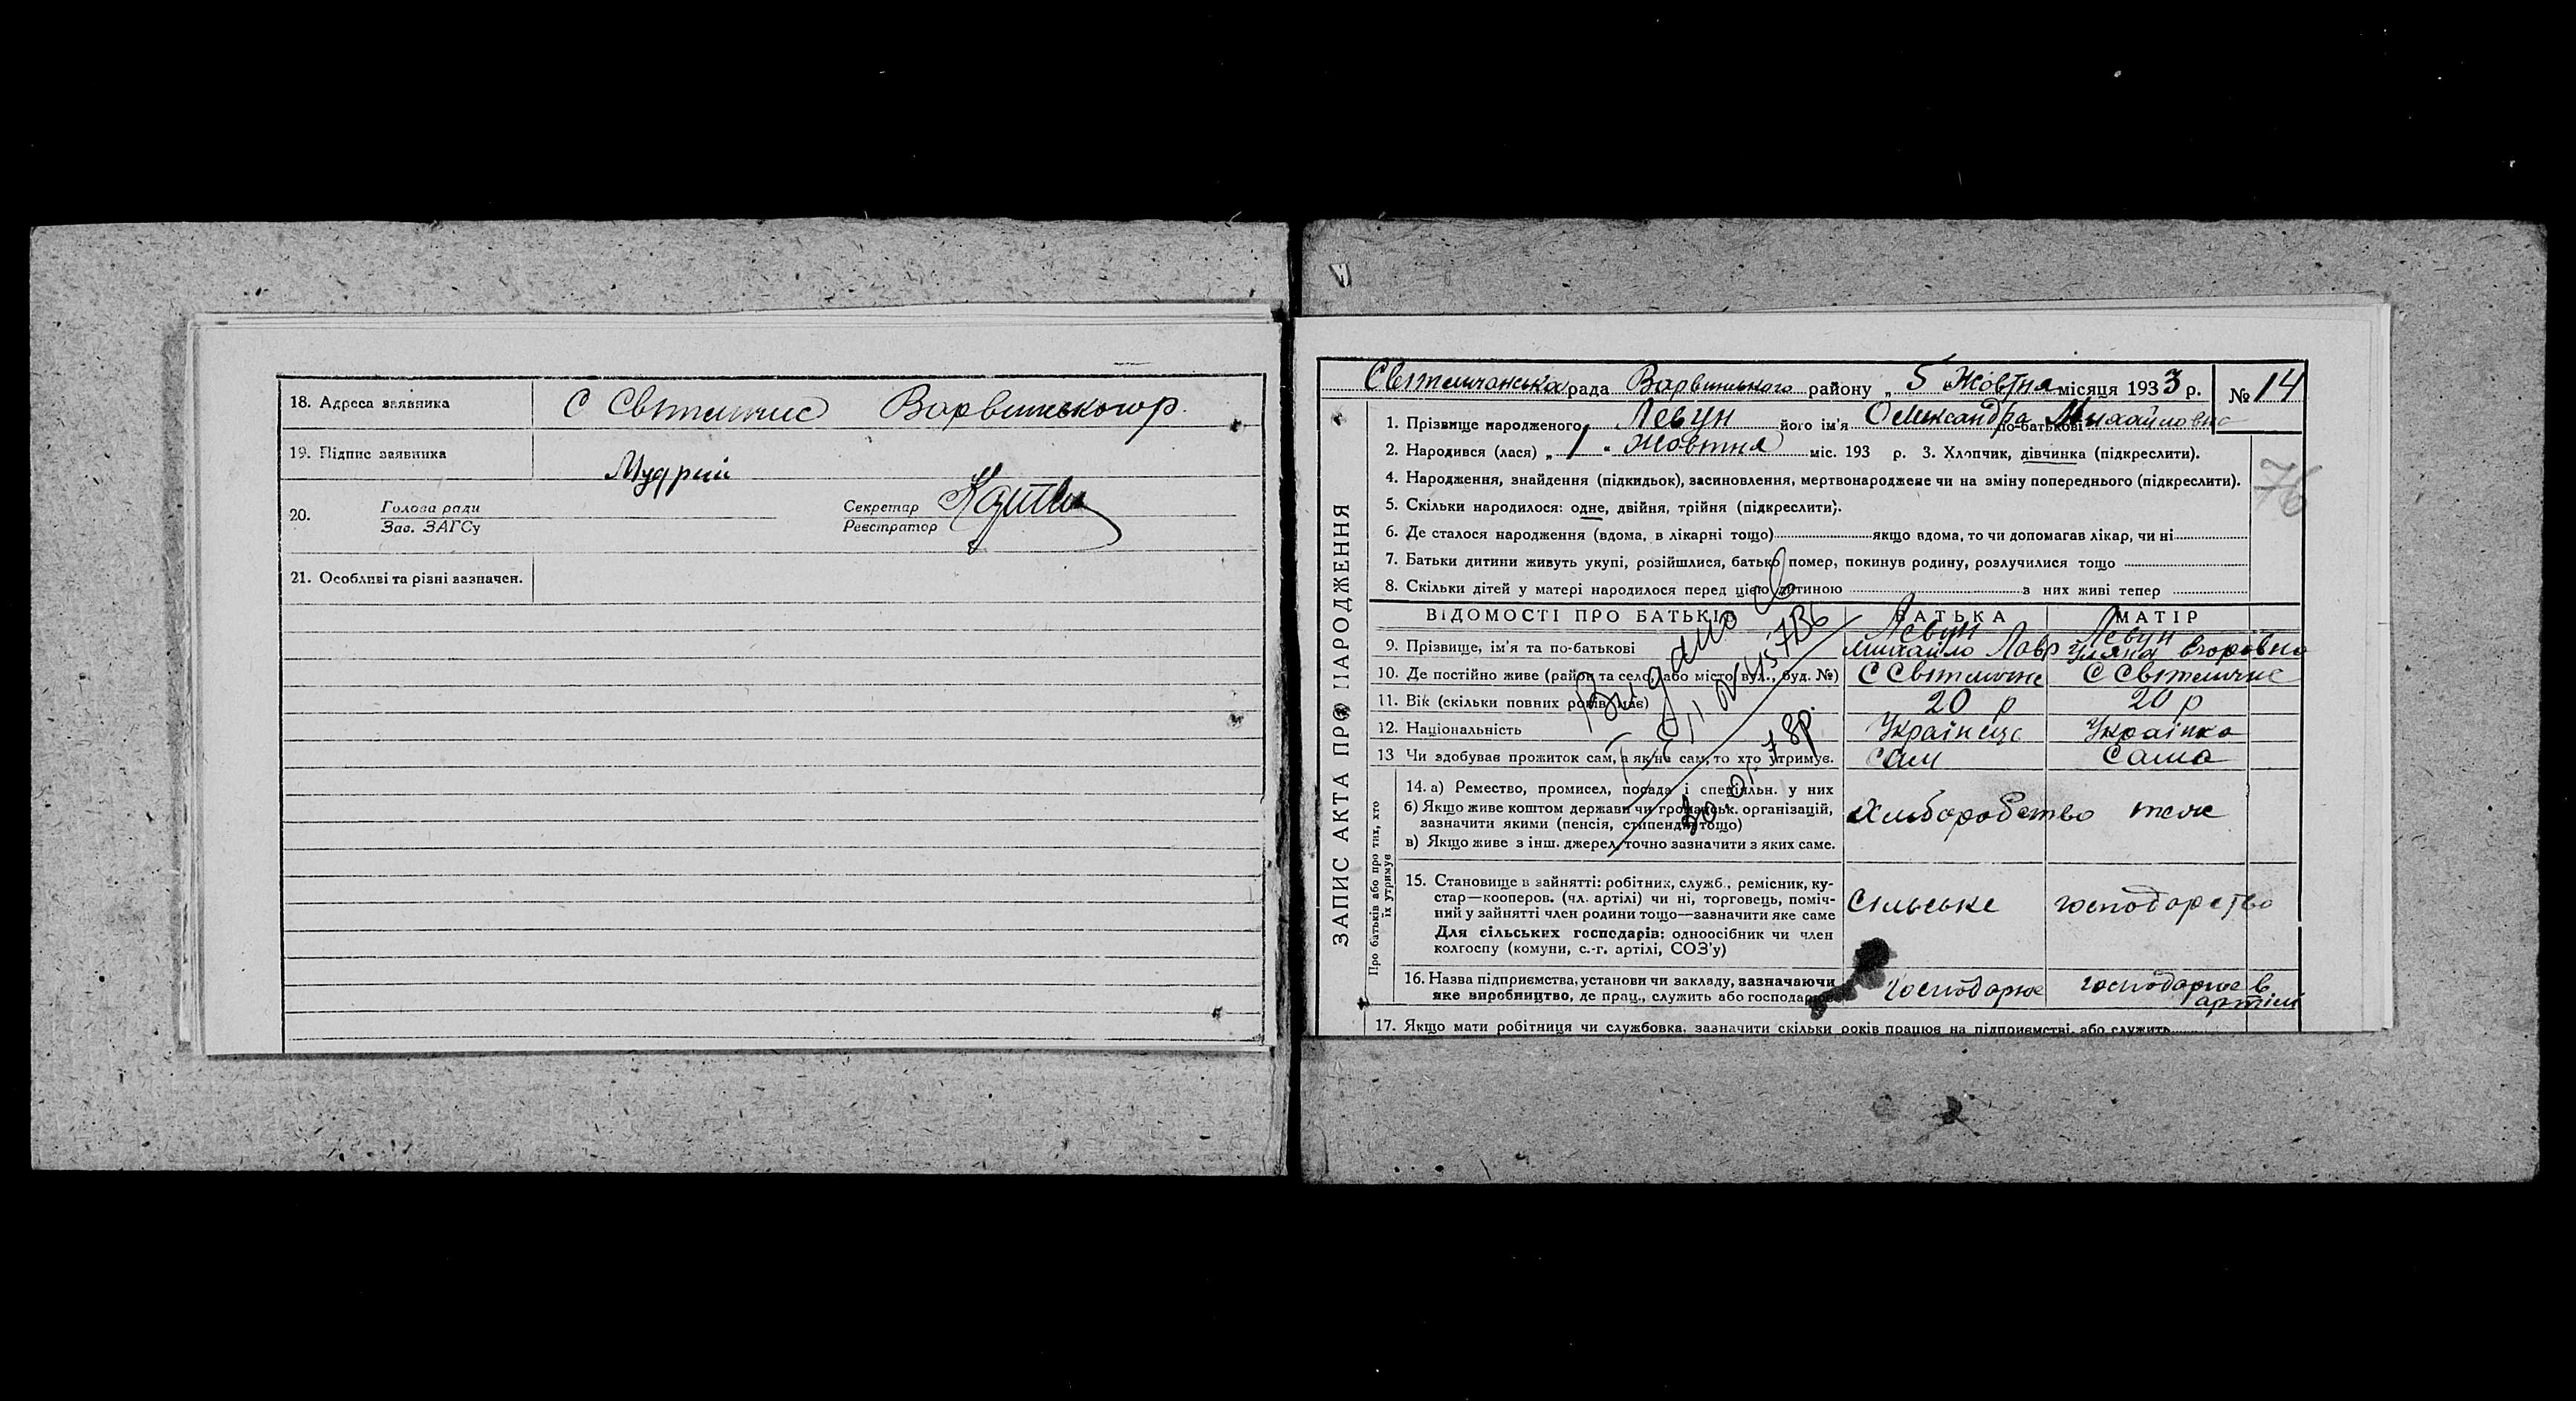 18. Адреса заявника С Світличне Варвинського р.
19. Підпис заявника Мудрий
20. Голова ради Секретар
Зав. ЗАГСу Реєстратор
21. Особливі та різні зазначен.
Світличанська рада Варвинського району „ 5 „ Жовтня місяця 1933 р. № 14
ЗАПИС АКТА ПРО НАРОДЖЕННЯ
1. Прізвище народженого Левун його ім'я Олександра по-батькові Михайловна
2. Народився (лася) „ 1 “ Жовтня міс. 193 р. 3. Хлопчик, дівчинка (підкреслити).
76
4. Народження, знайдення (підкидьок), засиновлення, мертвонароджене чи на зміну попереднього (підкреслити).
5. Скільки народилося: одне, двійня, трійня (підкреслити).
6. Де сталося народження (вдома, в лікарні тощо) якщо вдома, то чи допомагав лікар, чи ні
7. Батьки дитини живуть укупі, розійшлися, батько помер, покинув родину, розлучилися тощо
8. Скільки дітей у матері народилося перед цією дитиною з них живі тепер
ВІДОМОСТІ ПРО БАТЬКІВ БАТЬКА МАТІР
9. Прізвище, ім'я та по-батькові Левун Михайло Лавр Левун Уляна Егоровна
10. Де постійно живе (район та село, або місто, вул., буд. №) С Світличне С Світличне
11. Вік (скільки повних років має) 20 р 20 р
12. Національність Українець Українка
13 Чи здобував прожиток сам, а як не сам, то хто утримує. Сам Сама
Про батьків або про тих, хто
їх утримує
14. а) Ремество, промисел, посада і спеціяльн. у них
б) Якщо живе коштом держави чи громадськ. організацій,
зазначити якими (пенсія, стипендія тощо)
в) Якщо живе з інш. джерел, точно зазначити з яких саме.
Хліборобство теж
15. Становище в зайнятті: робітник, служб., ремісник, ку-
стар—кооперов. (чл. артілі) чи ні, торговець, поміч-
ний у зайнятті член родини тощо—зазначити яке саме
Для сільських господарів: одноосібник чи член
колгоспу (комуни, с.-г. артілі, СОЗ'у)
Сільське господарство
16. Назва підприємства, установи чи закладу, зазначаючи
яке виробництво, де прац., служить або господарює
господарює господарює в
артілі
17. Якщо мати робітниця чи службовка, зазначити скільки років працює на підприємстві, або служить
Видано